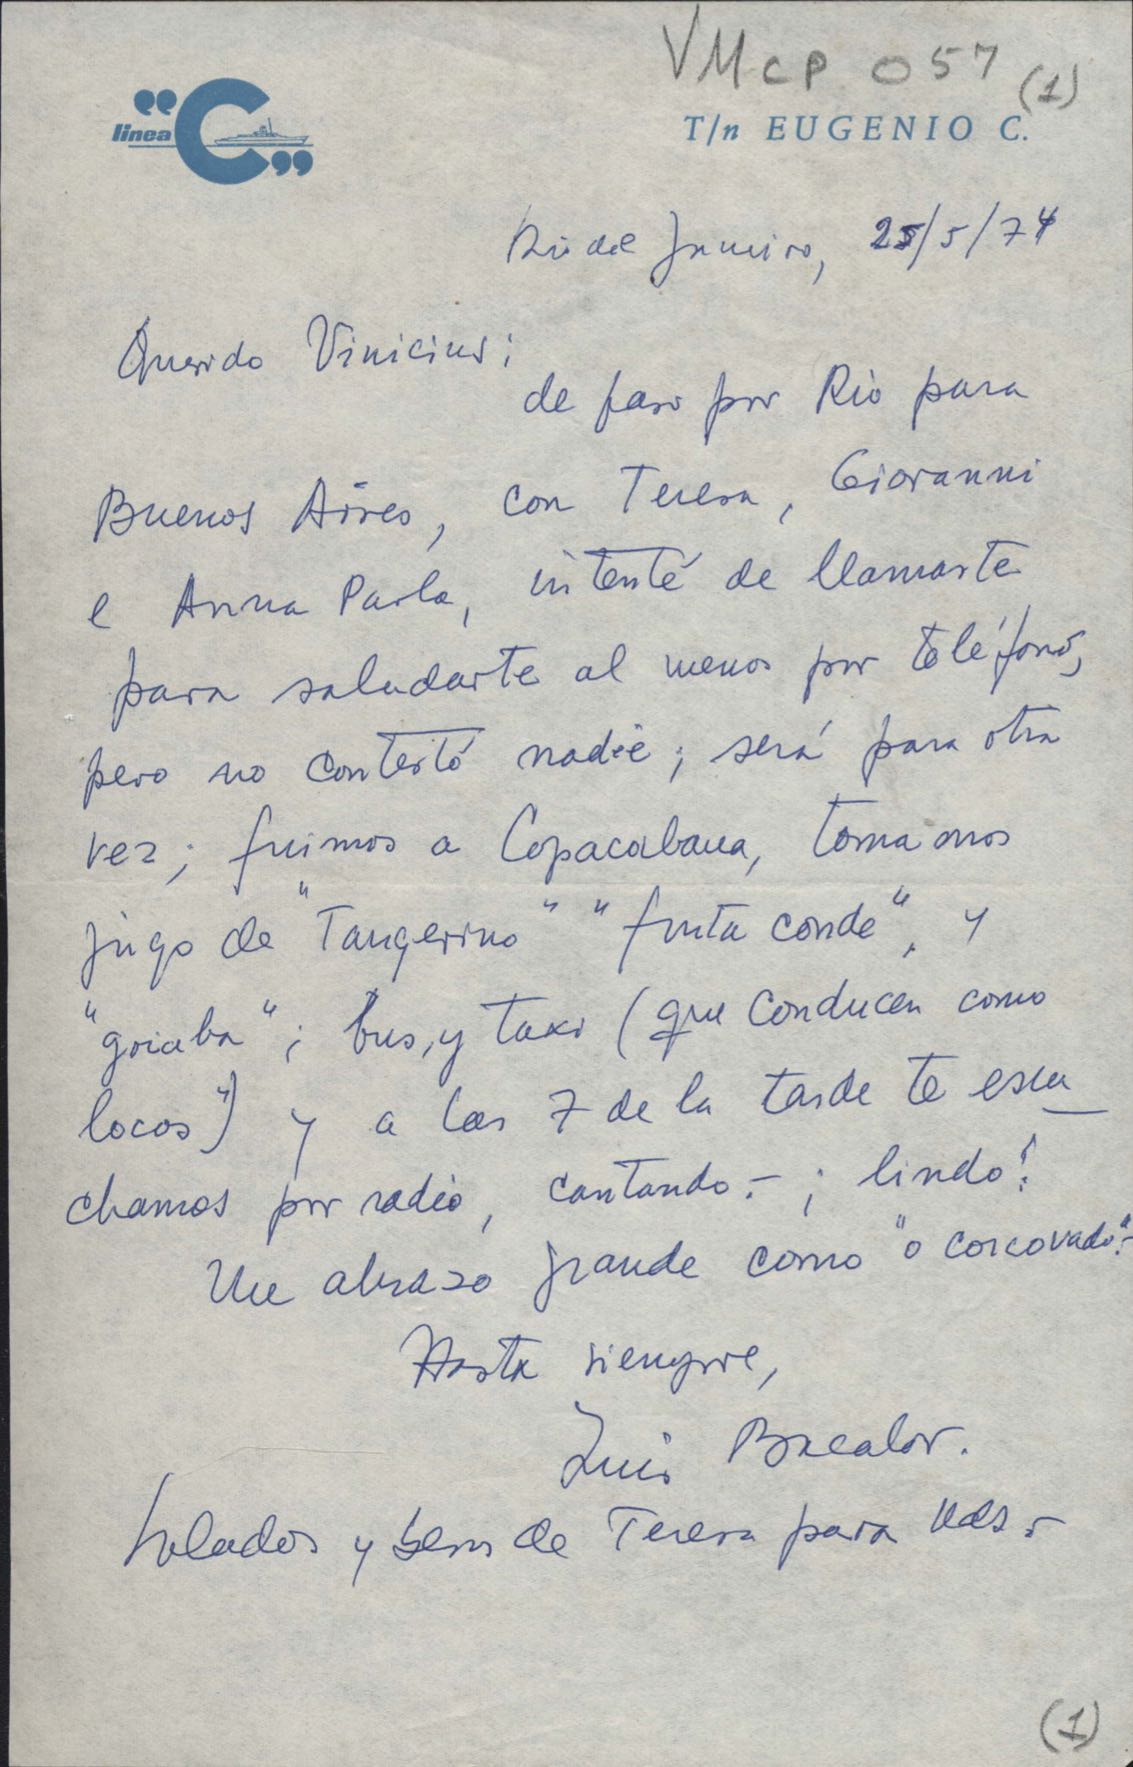 VMcp 057 (1)
"linea C"
T/n EUGENIO C.
Rio de Janeiro, 25/5/74
Querido Vinicius:
de paso por Rio para
Buenos Aires, con Teresa, Giovanni
e Anna Paola, intenté de llamarte
para saludarte al menos por teléfono,
pero no contestó nadie; será para otra
vez; fuimos a Copacabana, tomamos
jugo de "Tangerino" "fruta conde", y
"goiaba"; bus, y taxi (que conducen como
locos") y a las 7 de la tarde te escu_
chamos por radio, cantando.- ¡ lindo!
Un abrazo grande como "o corcovado".-
Hasta siempre,
Luis Bacalov.
Saludos y besos de Teresa para Uds.-
(1)